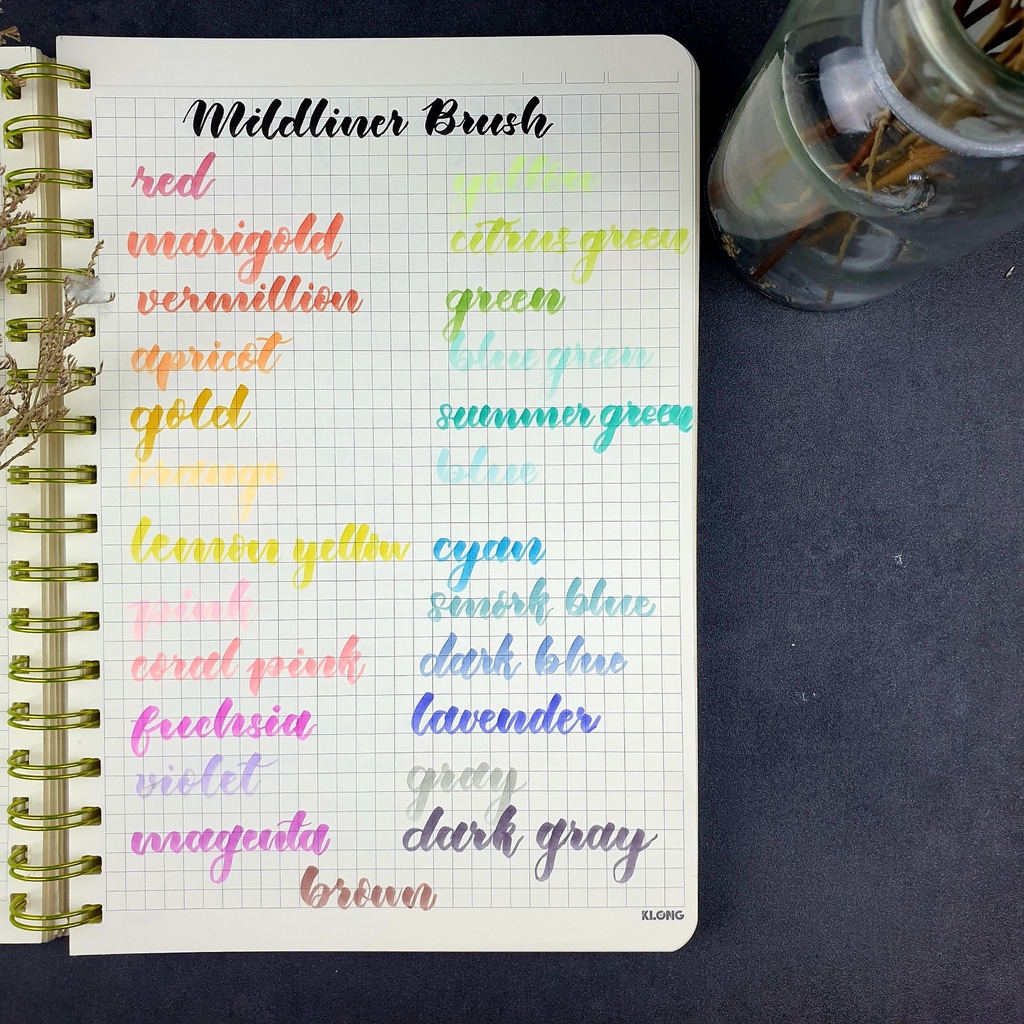 Mildliner Brush
red
marigold
vermillion
apricot
gold
orange
lemon yellow
pink
coral pink
fuchsia
violet
magenta
yellow
citrus green
green
blue green
summer green
blue
cyan
smork blue
dark blue
lavender
gray
dark gray
brown
KLONG